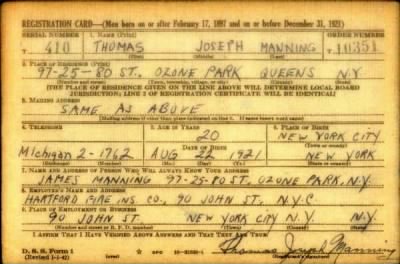 REGISTRATION CARD—(Men born on or after February 17, 1897 and on or before December 31, 1921)
SERIAL NUMBER 1. NAME (Print) ORDER NUMBER
T 410 THOMAS JOSEPH MANNING 10351
(First) (Middle) (Last)
2. PLACE OF RESIDENCE (Print)
97-25-80 ST., OZONE PARK QUEENS N.Y.
(Number and street) (Town, township, village, or city) (County) (State)
[THE PLACE OF RESIDENCE GIVEN ON THE LINE ABOVE WILL DETERMINE LOCAL BOARD
JURISDICTION; LINE 2 OF REGISTRATION CERTIFICATE WILL BE IDENTICAL]
3. MAILING ADDRESS
SAME AS ABOVE
[Mailing address if other than place indicated on line 2. If same insert word same]
4. TELEPHONE 5. AGE IN YEARS 6. PLACE OF BIRTH
20 NEW YORK CITY
DATE OF BIRTH (Town or county)
MIchigan 2-1762 AUG 22 1921 NEW YORK
(Exchange) (Number) (Mo.) (Day) (Yr.) (State or country)
7. NAME AND ADDRESS OF PERSON WHO WILL ALWAYS KNOW YOUR ADDRESS
JAMES MANNING 97-25-80 ST., OZONE PARK, N.Y.
8. EMPLOYER'S NAME AND ADDRESS
HARTFORD FIRE INS. CO., 90 JOHN ST., N.Y.C
9. PLACE OF EMPLOYMENT OR BUSINESS
90 JOHN ST. NEW YORK CITY N.Y. N.Y.
(Number and street or R. F. D. number) (Town) (County) (State)
I AFFIRM THAT I HAVE VERIFIED ABOVE ANSWERS AND THAT THEY ARE TRUE.
D. S. S. Form 1
(Revised 1-1-42) (over)
Thomas Joseph Manning